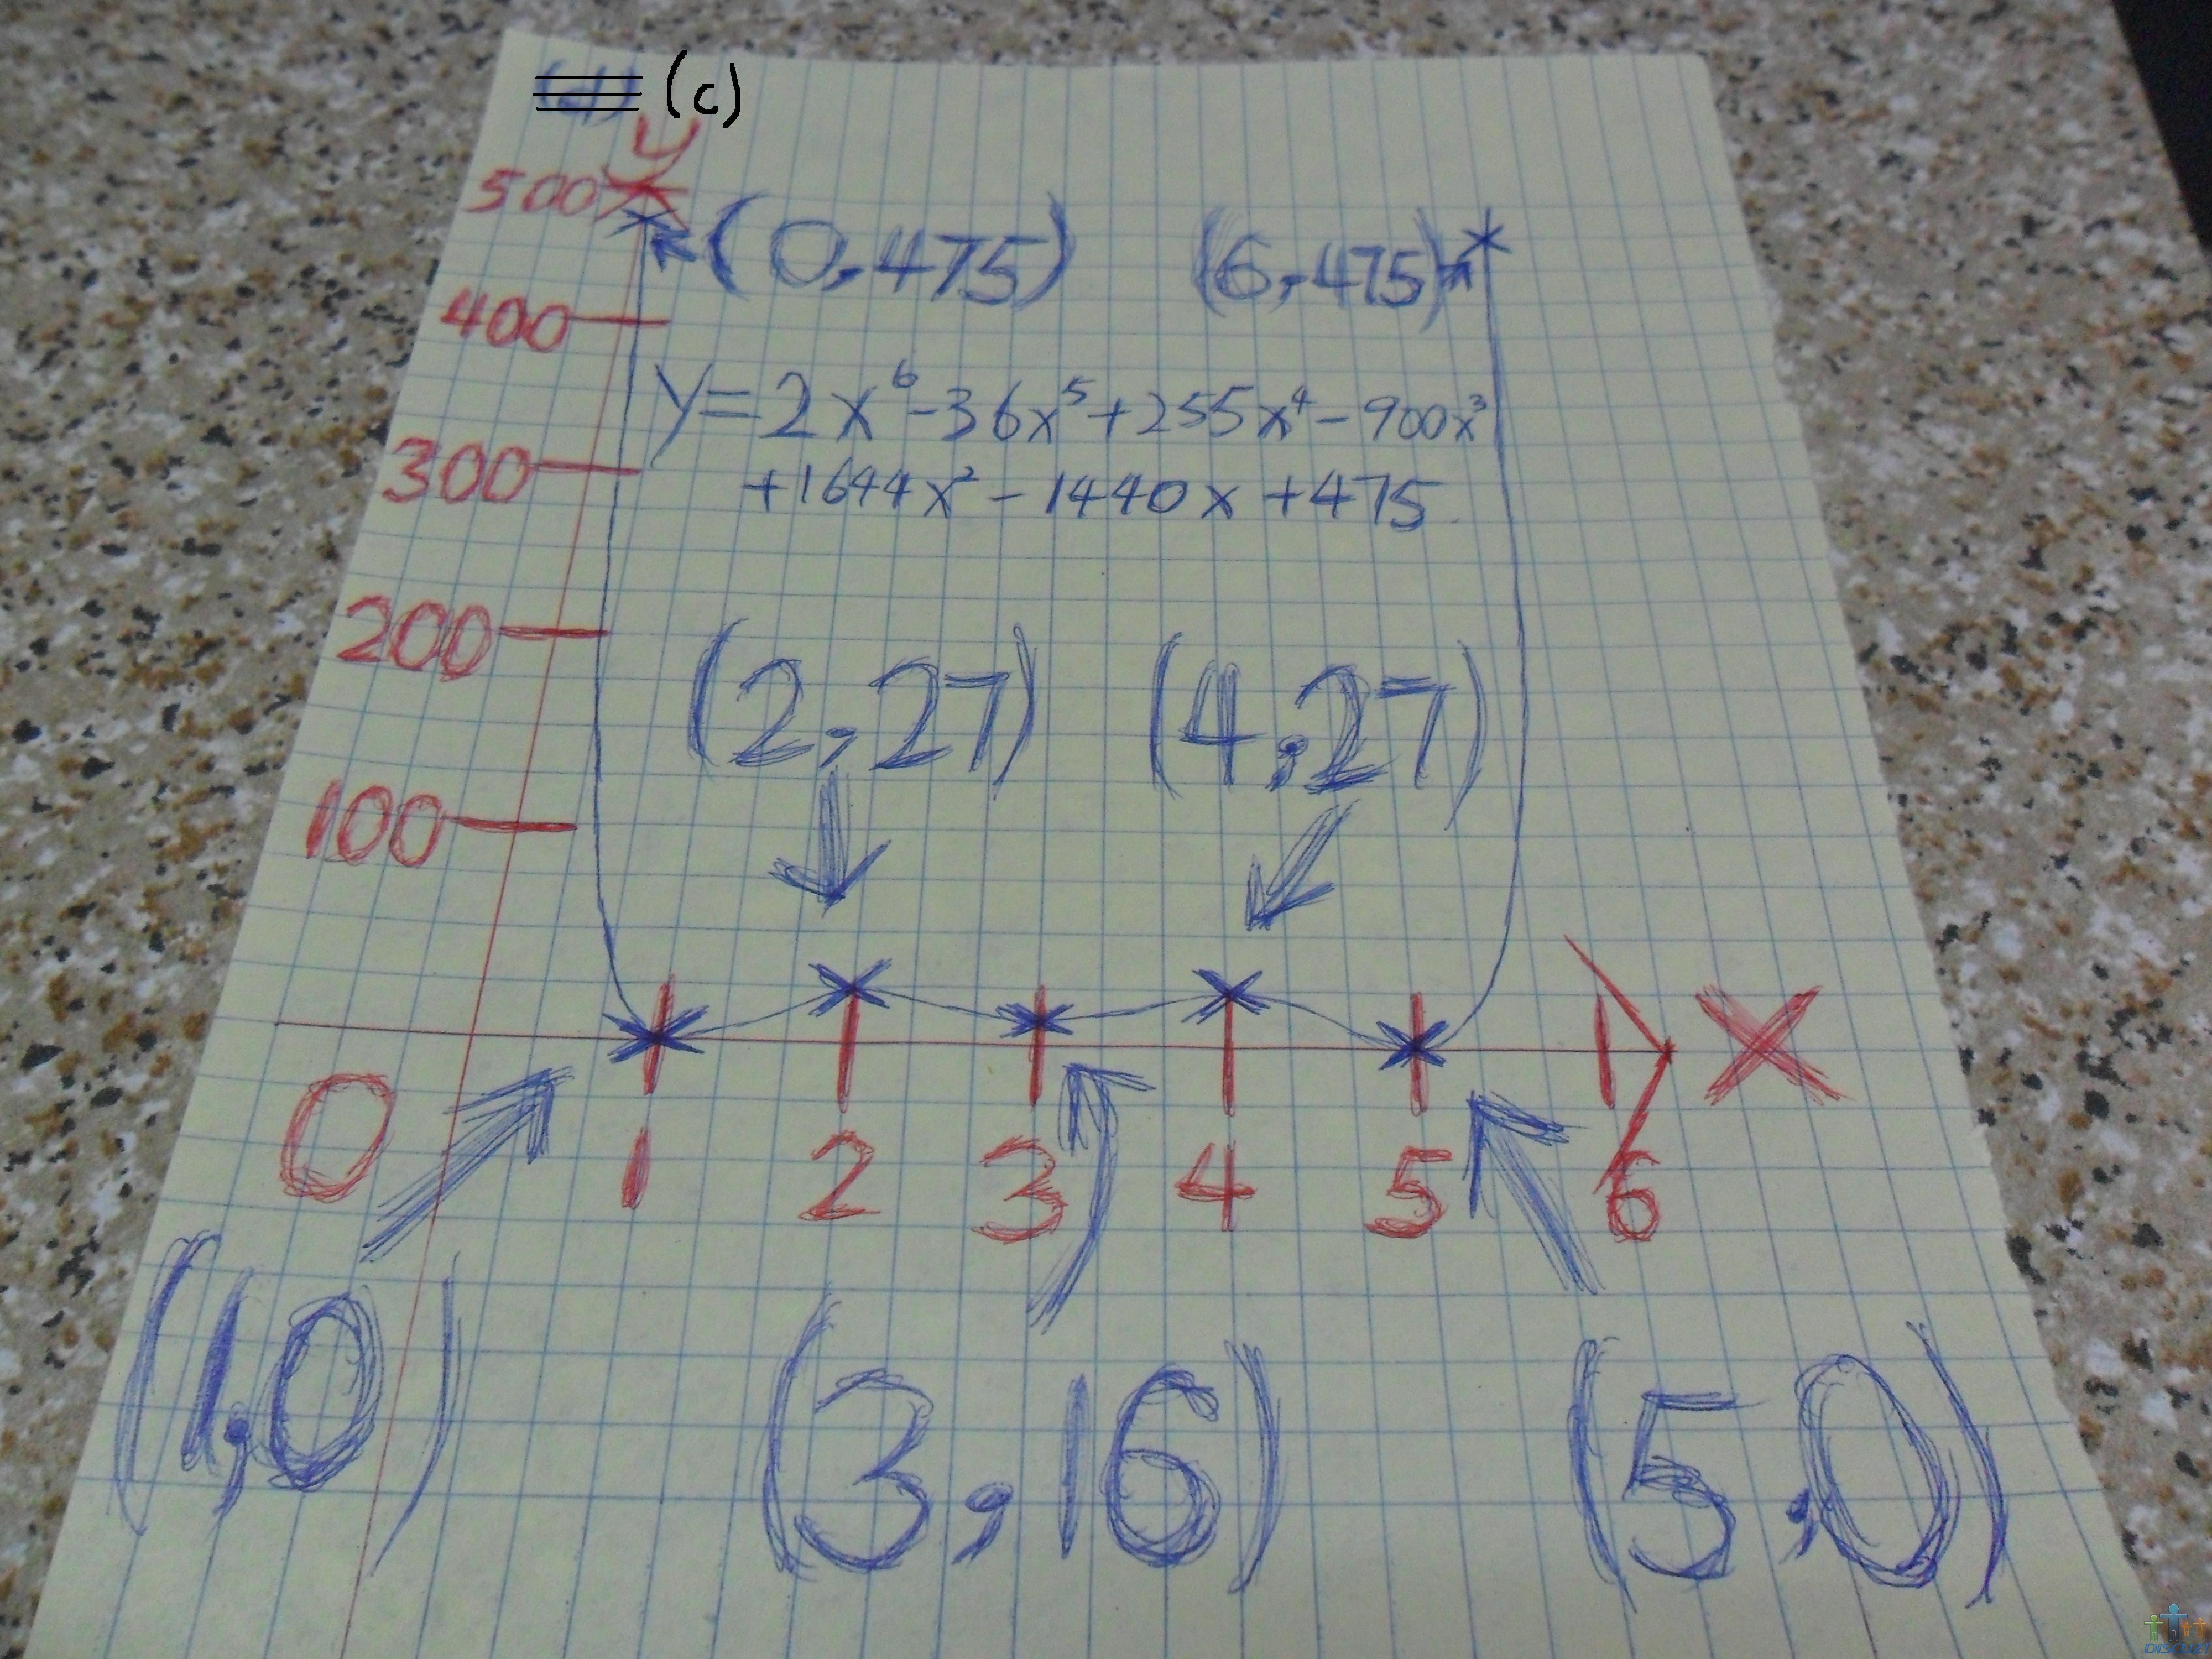 (d) (c)
y
500
(0,475) (6,475)
400
y=2x⁶-36x⁵+255x⁴-900x³
300
+1644x²-1440x+475
200
(2,27) (4,27)
100
x
0 1 2 3 4 5 6
(1,0) (3,16) (5,0)